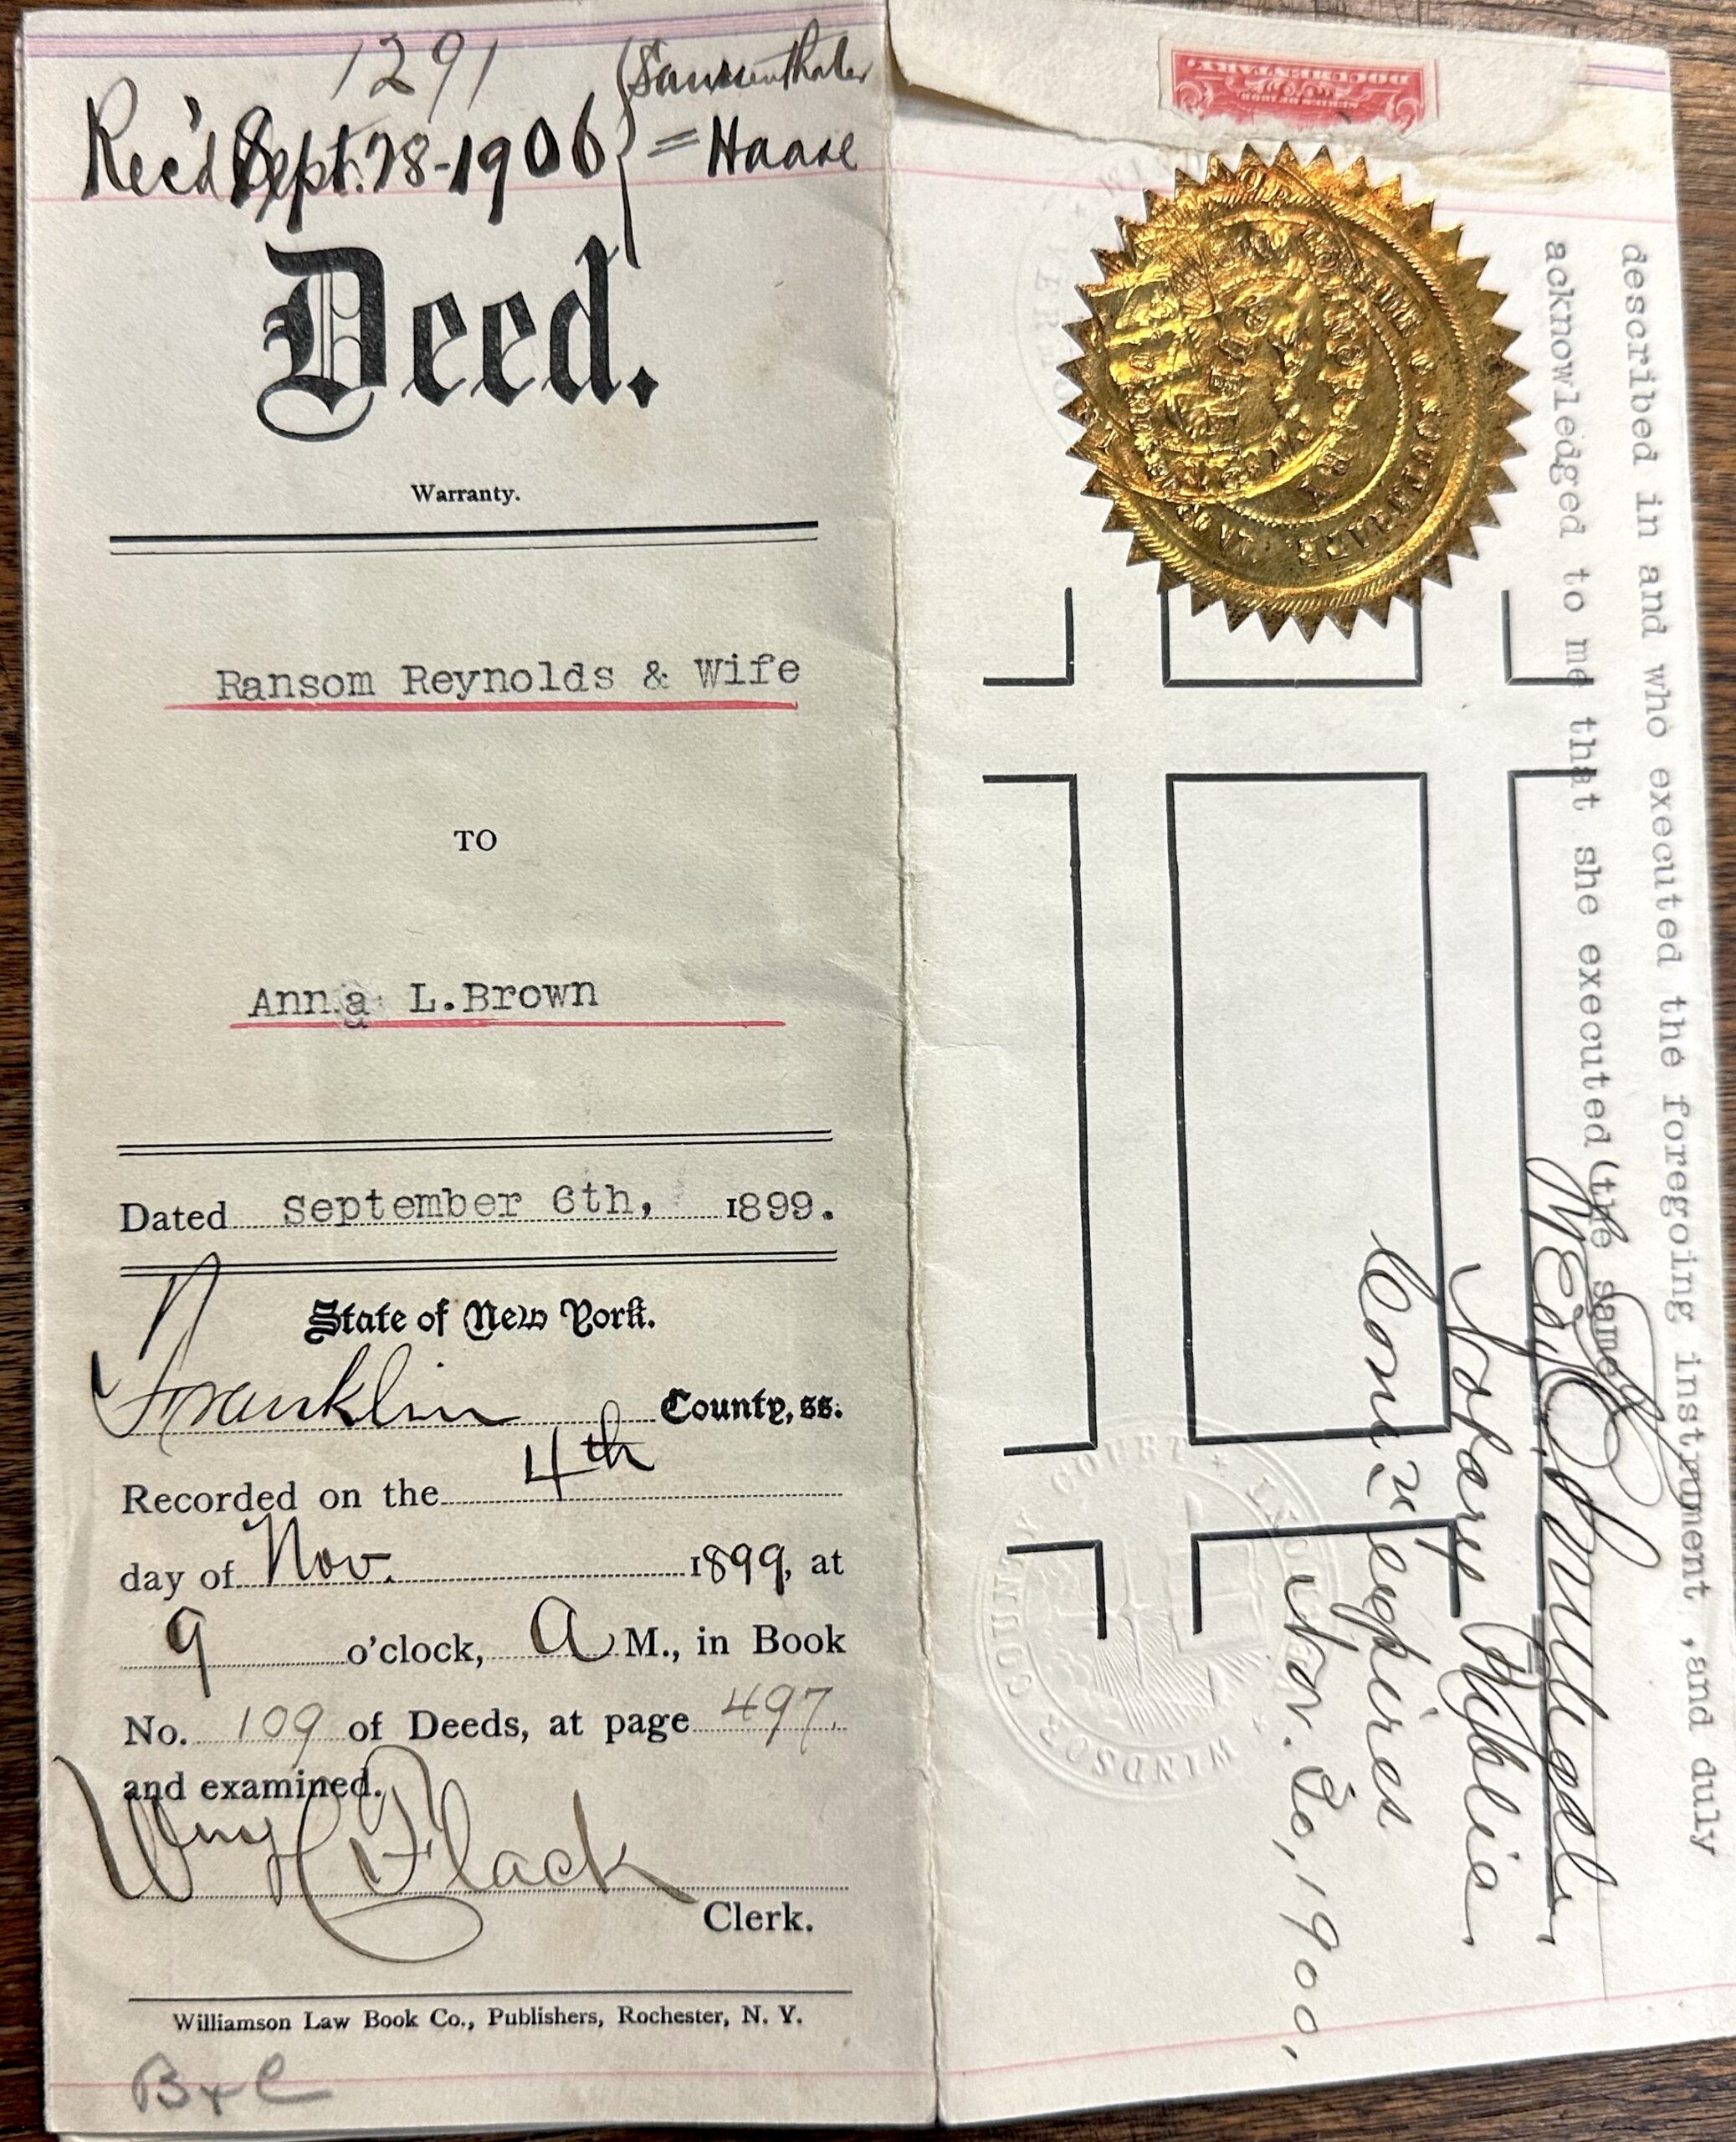 1291
Rec'd Sept. 28-1906
= Haase
Deed.
Warranty.
Ransom Reynolds & Wife
TO
Anna L.Brown
Dated September 6th, 1899.
State of New York.
Franklin County, ss.
Recorded on the 4th
day of Nov. 1899, at
9 o'clock, A M., in Book
No. 109 of Deeds, at page 497
and examined.
Flack
Clerk.
Williamson Law Book Co., Publishers, Rochester, N. Y.
B & C
DOCUMENTARY
SERIES OF 1898
described in and who executed the foregoing instrument ,and duly
acknowledged to me that she executed the same
Notary Public
Com expires
Nov. 30, 1900,
WINDSOR COUNTY COURT